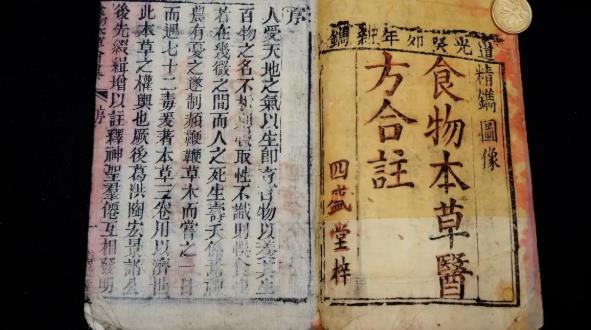 道光癸卯年新鐫
精鐫圖像
食物本草醫
方合註
四盛堂梓
序
人受天地之氣以生即物以養其生
百物之名不取性不識則
著在幾微之間而人之死生壽夭
農有憂之遂制鞭鞭草木而嘗之一日
而遇七十二毒爰著本草三卷用以濟世
此本草之權輿也厥後葛洪陶宏景諸公
後先綴緝增以註釋神聖羣僊互相發明
序